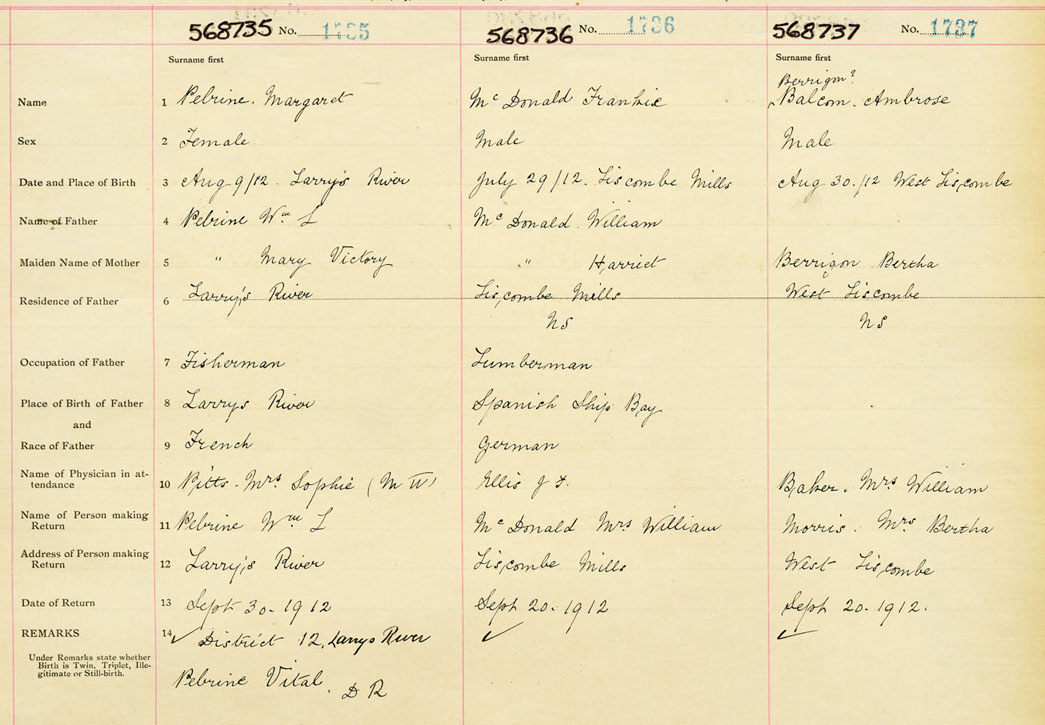 568735 No. 1735 568736 No. 1736 568737 No. 1737
Surname first Surname first Surname first
Berrigon?
Name 1 Pelrine. Margaret Mc Donald Frankie Balcom. Ambrose
Sex 2 Female Male Male
Date and Place of Birth 3 Aug 9/12. Larry's River July 29/12. Liscombe Mills Aug 30./12 West Liscombe
Name of Father 4 Pelrine Wm L Mc Donald. William
Maiden Name of Mother 5 " Mary Victory " Harriet Berrigon Bertha
Residence of Father 6 Larry's River Liscombe Mills West Liscombe
NS NS
Occupation of Father 7 Fisherman Lumberman
Place of Birth of Father 8 Larrys River Spanish Ship Bay
and
Race of Father 9 French German
Name of Physician in at-
tendance 10 Pitts. Mrs Sophie (M W) Ellis J F. Baker. Mrs William
Name of Person making
Return 11 Pelrine Wm L Mc Donald Mrs William Morris. Mrs Bertha
Address of Person making
Return 12 Larry's River Liscombe Mills West Liscombe
Date of Return 13 Sept 30-1912 Sept 20-1912 Sept 20-1912.
REMARKS 14 ✓ District 12, Larrys River ✓ ✓
Under Remarks state whether
Birth is Twin, Triplet, Ille-
gitimate or Still-birth.
Pelrine Vital. D R